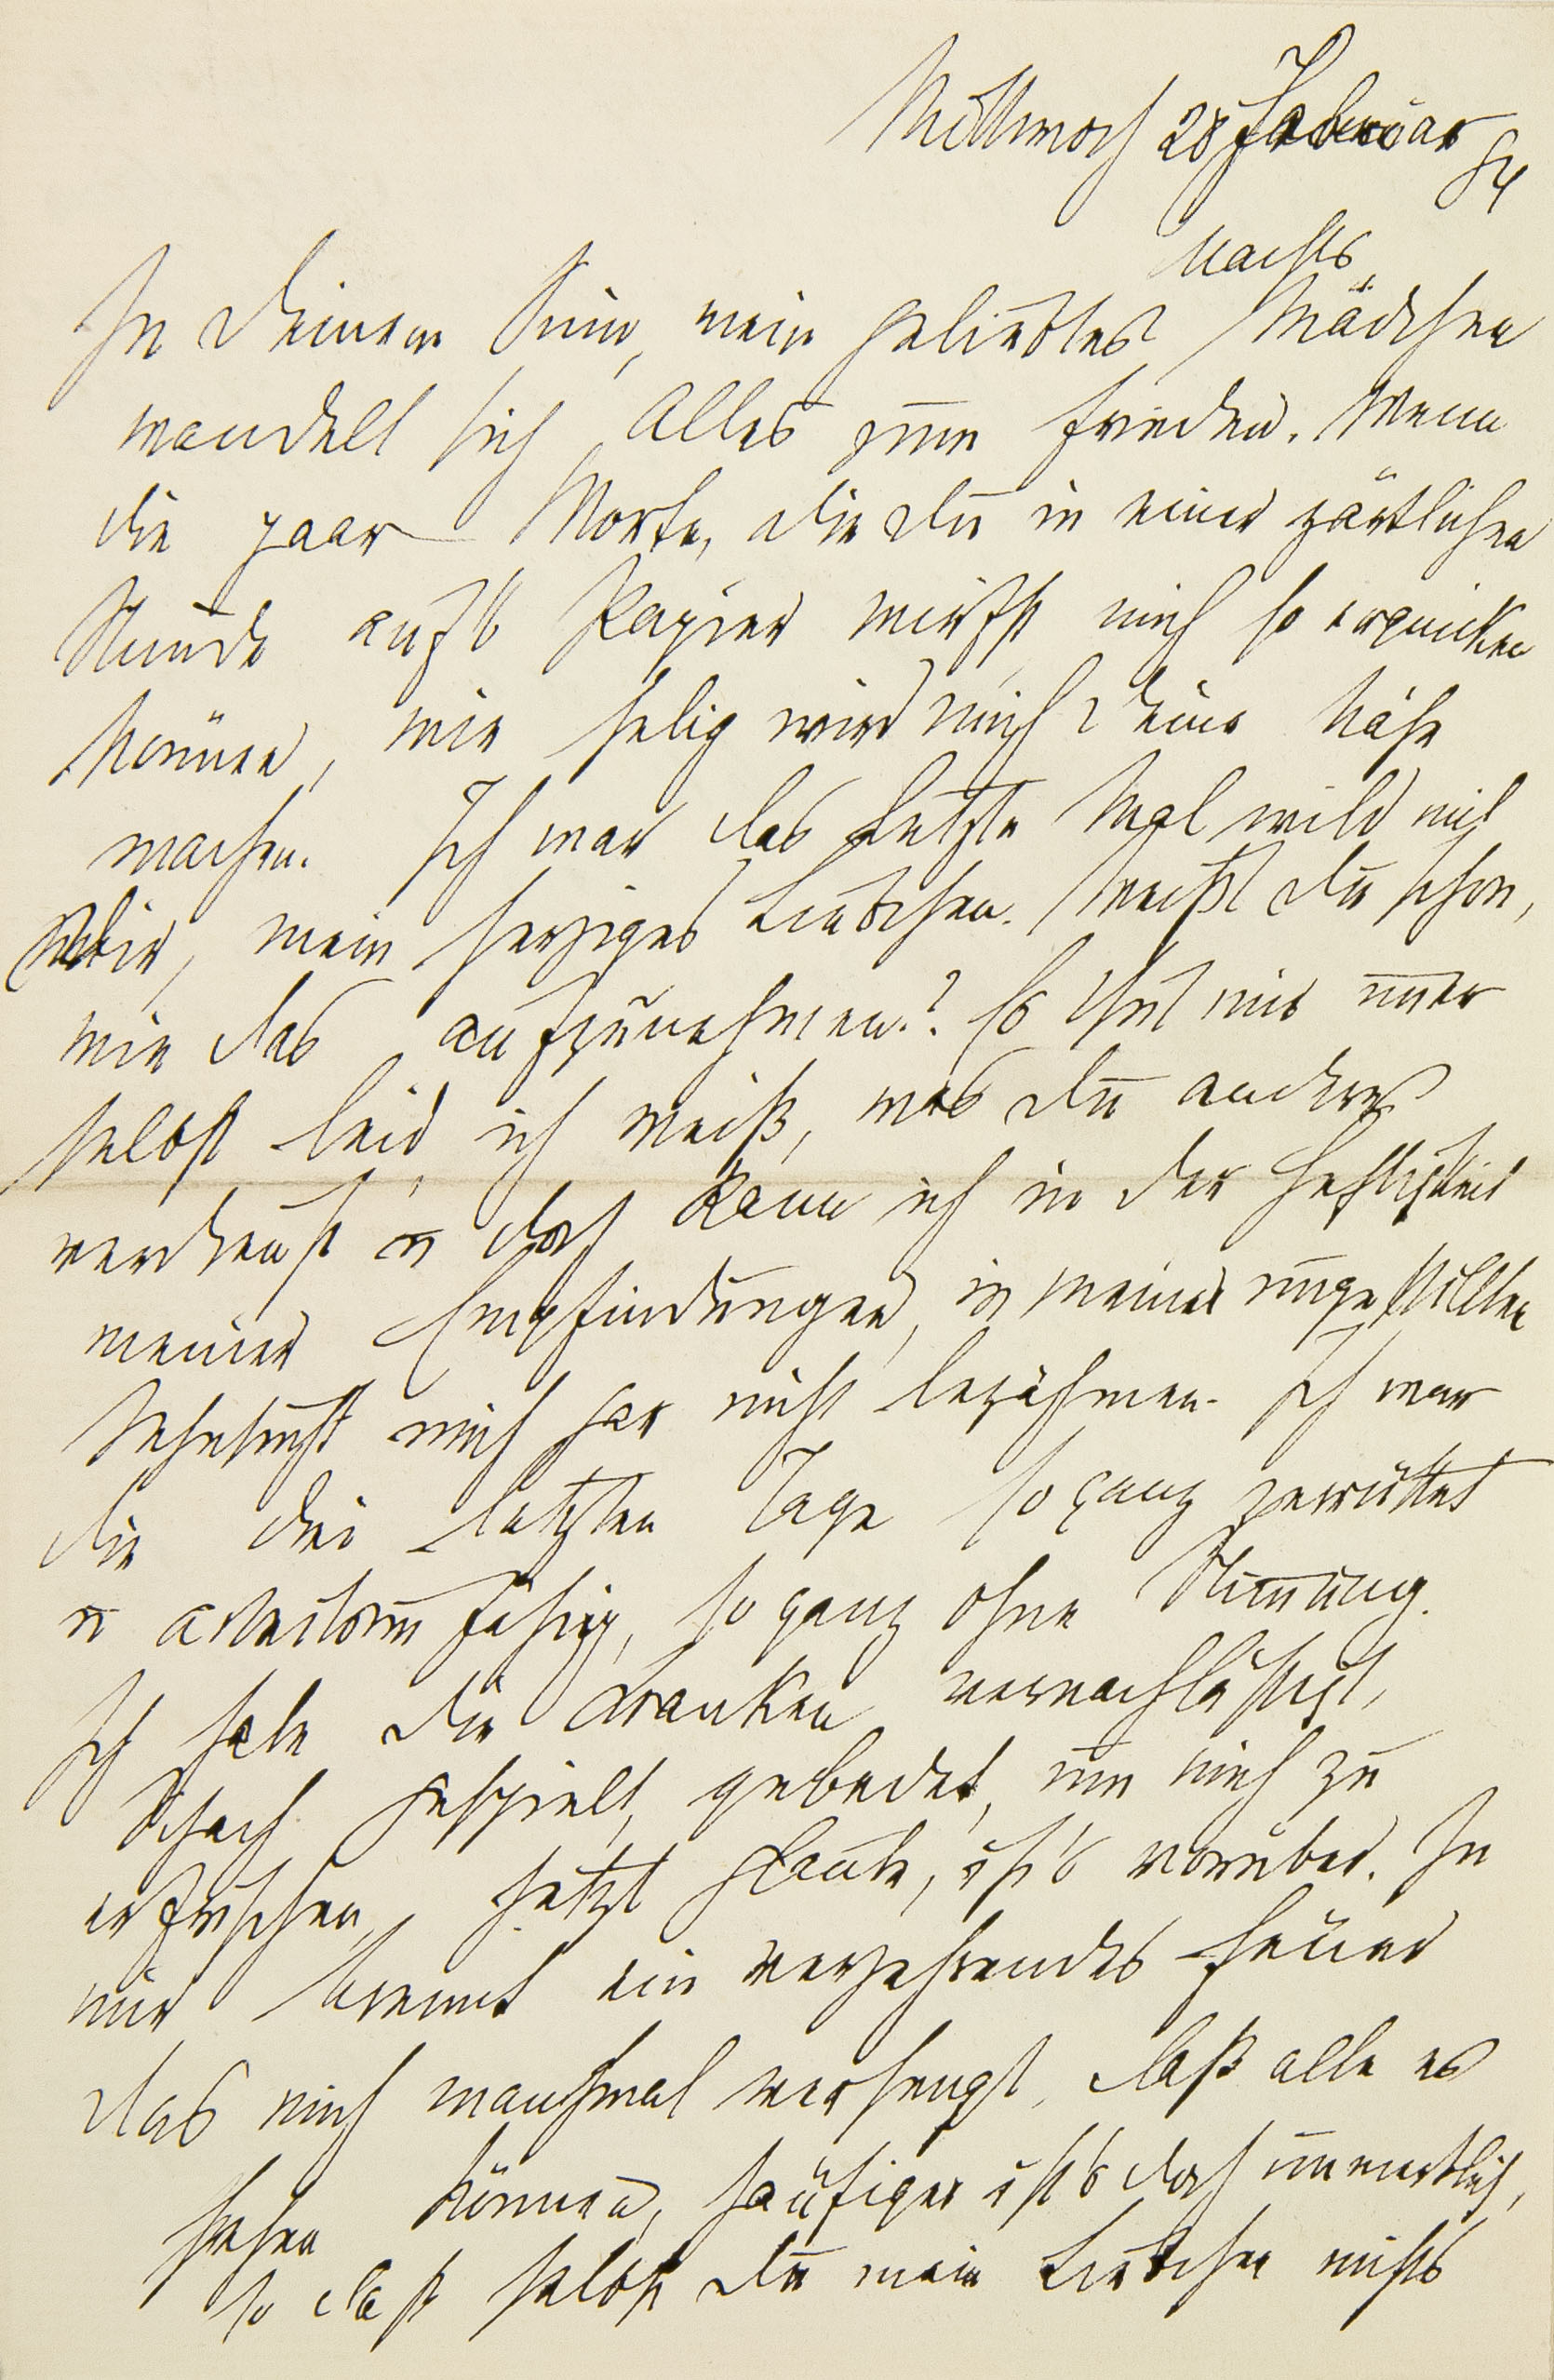 Mittwoch 28 Februar
84
Nachts
In Deinem Sinn, mein geliebtes Mädchen
wandelt sich Alles zum Frieden. Wenn
die paar Worte, die Du in einer zärtlichen
Stunde auf's Papier wirfst mich so erquicken
können, wie selig wird mich Deine Nähe
machen. Ich war das letzte Mal wild mit
Dir, mein herziges Liebchen. Weißt Du schon,
wie das aufzunehmen? Es thut mir im̅er
selbst leid, ich weiß, was Du anders
verdienst u doch kann ich in der Heftigkeit
meiner Empfindungen, in meiner ungestillten
Sehnsucht mich gar nicht bezähmen. Ich war
die drei letzten Tage so ganz zerrüttet
u arbeitsunfähig, so ganz ohne Stim̅ung.
Ich habe die Kranken vernachläßigt,
Schach gespielt, gebadet, um mich zu
erfrischen, jetzt glaube, ist's vorüber. In
mir brennt ein verzehrendes Feuer
das mich manchmal versengt, daß alle es
sehen können, häufiger ist's doch unmerklich,
so daß selbst Du mein Liebchen nichts